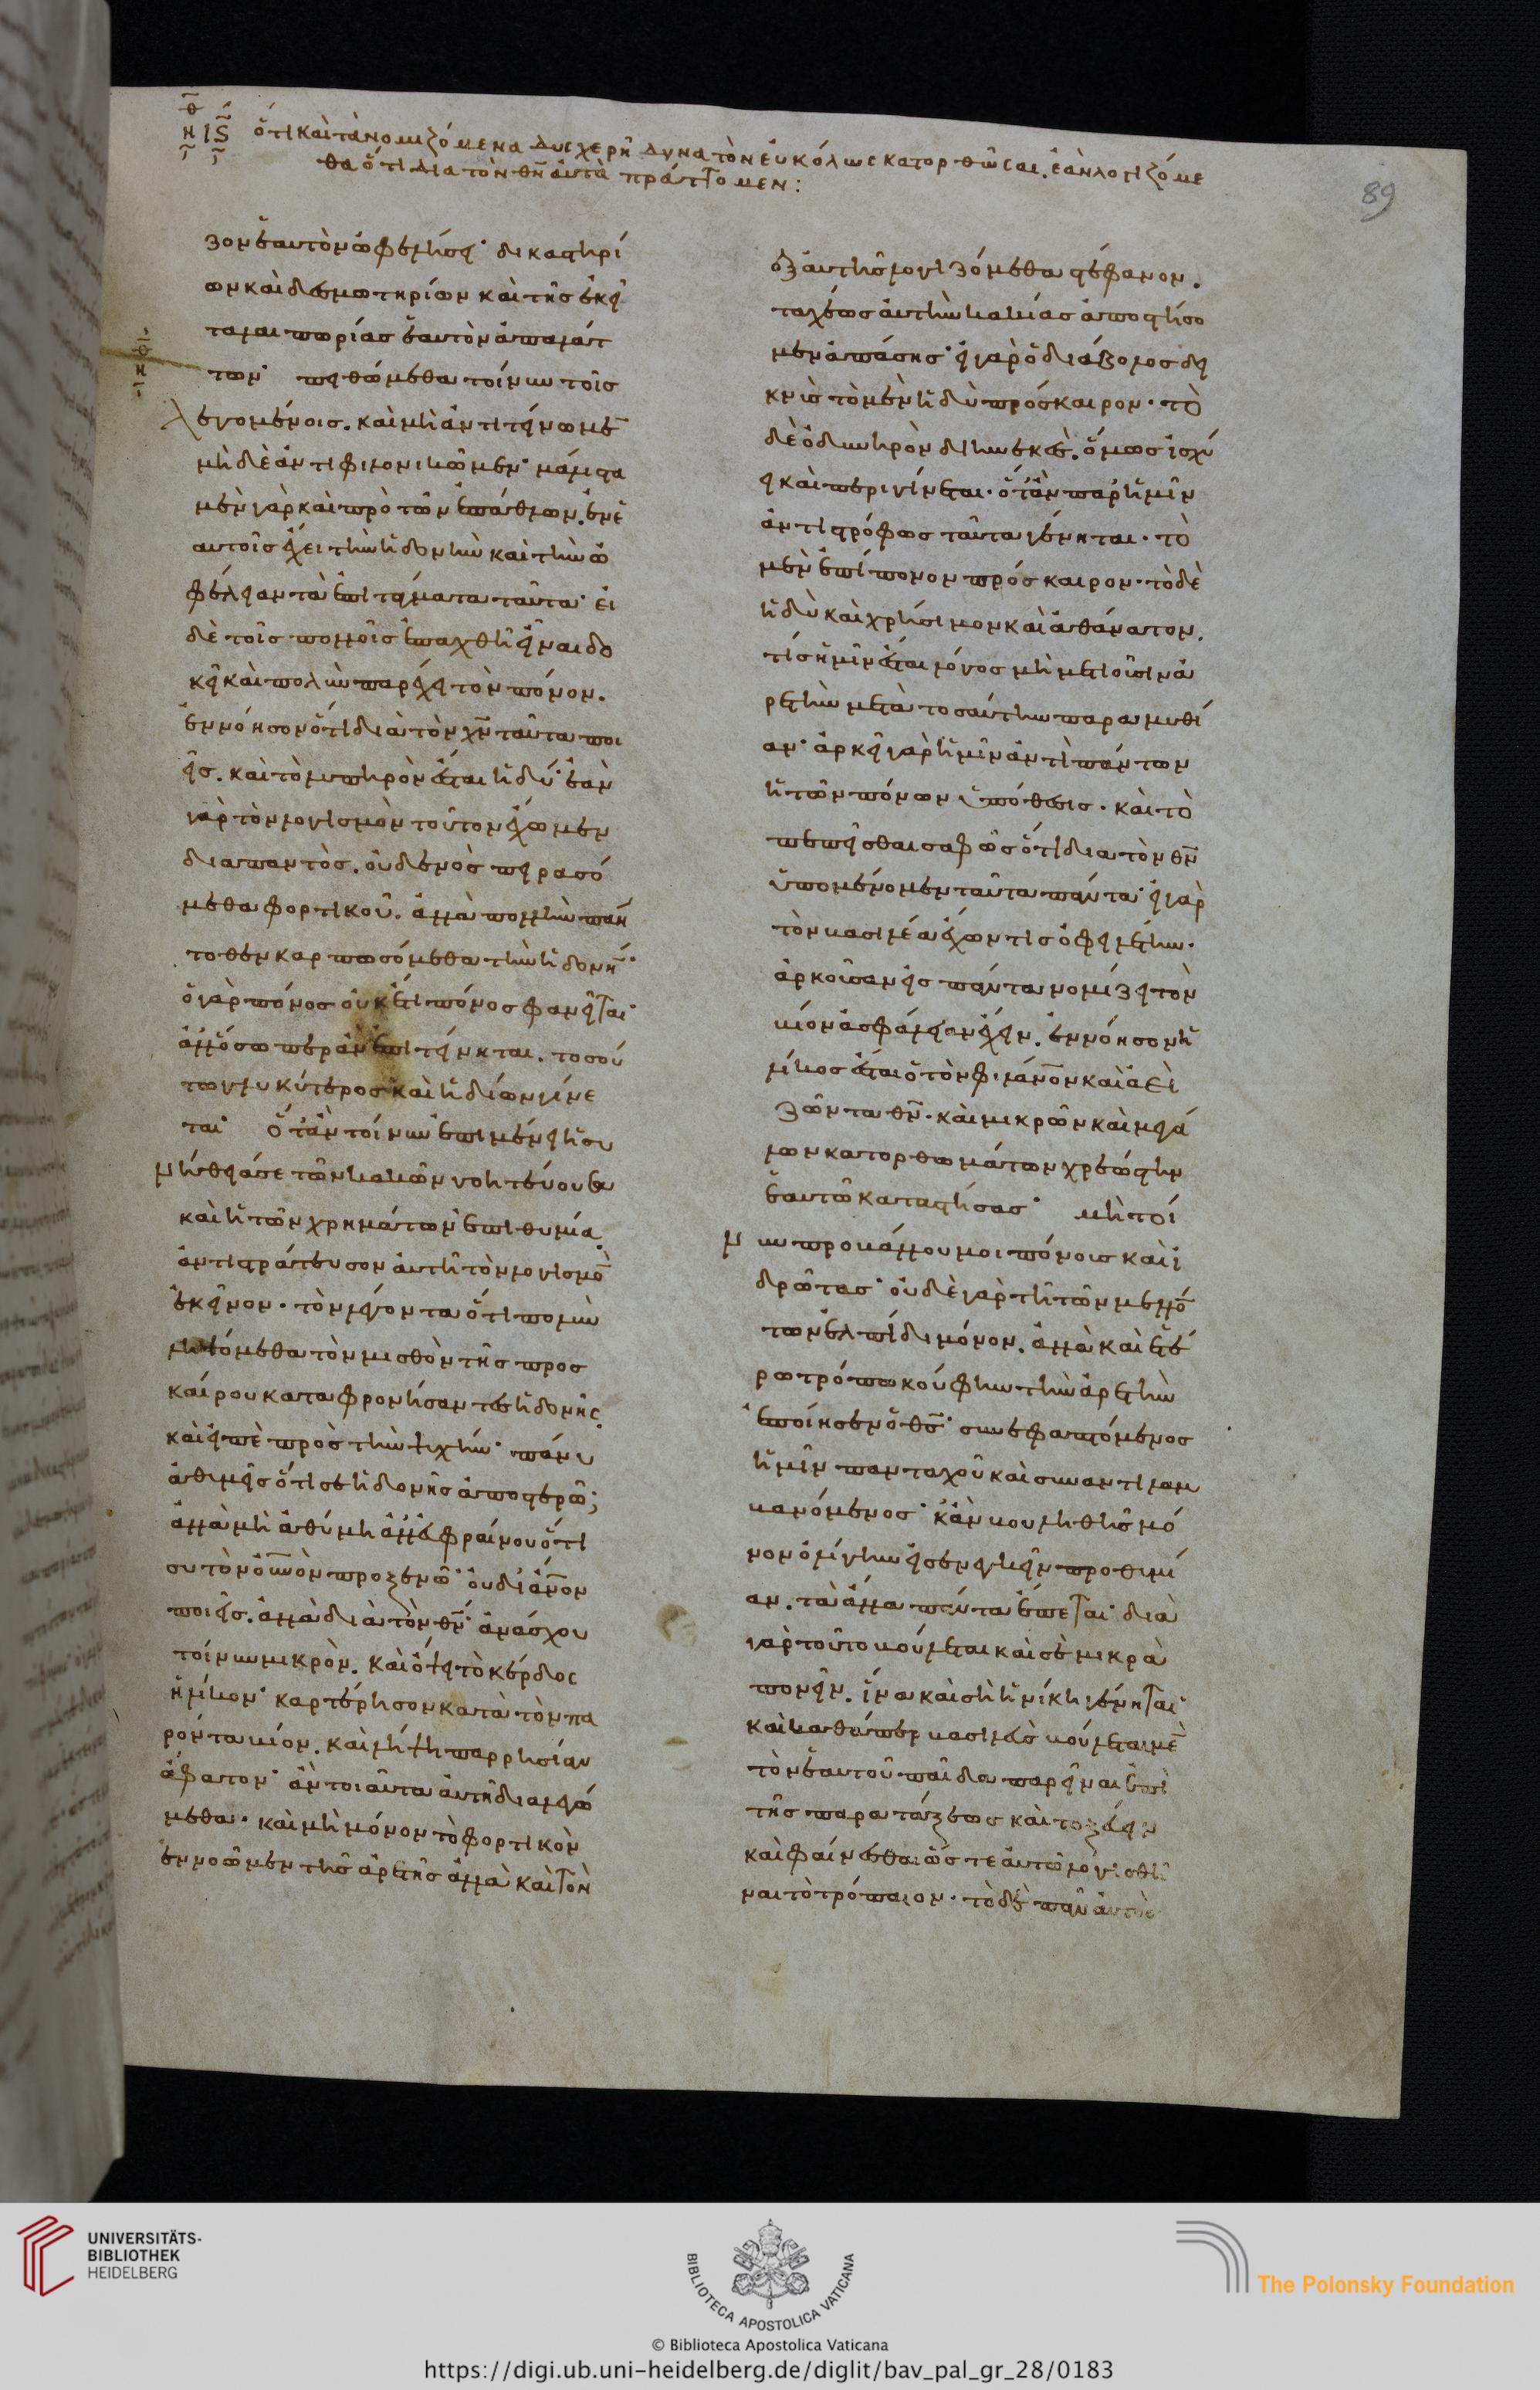 ὅτι καὶ τὰ νομιζόμενα δυσχερῆ δυνατὸν εὐκόλως κατορθῶσαι. ἐὰν λογιζόμε
θα ὅτι διὰ τὸν θν̅ αὐτὰ πράττομεν:
89
ζον ἑαυτὸν ὠφελήσει· δικαστηρί
ων καὶ δεσμωτηρίων καὶ τῆς ἐκεῖ
ταλαιπωρίας ἑαυτὸν ἀπαλάτ
των· πειθώμεθα τοίνυν τοῖς
λεγομένοις. καὶ μὴ ἀντιτείνωμε̅
μηδὲ ἀντιφιλονικῶμεν· μάλιστα
μὲν γὰρ καὶ πρὸ τῶν ἐπάθλων. ἐν ἑ
αυτοῖς ἔχει τὴν ἡδονὴν καὶ τὴν ὠ
φέλειαν τὰ ἐπιτάγματα ταῦτα· εἰ
δὲ τοῖς πολλοῖς ἐπαχθῆ εἶναι δο
κεῖ καὶ πολὺν παρέχει τὸν πόνον.
ἐννόησον ὅτι διὰ τὸν χν̅ ταῦτα ποι
εῖς. καὶ τὸ λυπηρὸν ἔσται ἡδύ· ἐὰν
γὰρ τὸν λογισμὸν τοῦτον ἔχωμεν
διαπαντὸς. οὐδενὸς πειρασό
μεθα φορτικοῦ. ἀλλὰ πολλὴν παν
τοθεν καρπωσόμεθα τὴν ἡδονή̅·
ὁ γὰρ πόνος οὐκέτι πόνος φανεῖται·
ἀλλ' ὅσωπερ ἂν ἐπιτείνηται. τοσού
τω γλυκύτερος καὶ ἡδίων γίνε
ται· ὅταν τοίνυν ἐπιμένη ἡ συ
νήθειά σε τῶν κακῶν γοητεύουσα
καὶ ἡ τῶν χρημάτων ἐπιθυμία.
ἀντιστράτευσον αὐτῆ τὸν λογισμὸ̅
ἐκεῖνον. τὸν λέγοντα ὅτι πολὺν
ληψόμεθα τὸν μισθὸν τῆς προς
καίρου καταφρονήσαντες ἡδονῆς.
καὶ εἰπὲ πρὸς τὴν ψυχήν· πάνυ
ἀθυμεῖς ὅτι σε ἡδονῆς ἀποστερῶ;
ἀλλὰ μὴ ἀθύμη ἀλλ' εὐφραίνου ὅτι
σοι τὸν οὐνὸν προξενῶ· οὐ δι' ἄνον
ποιεῖς. ἀλλὰ διὰ τὸν θν̅· ἀνάσχου
τοίνυν μικρὸν. καὶ ὄψει τὸ κέρδος
ἡλίκον· καρτέρησον κατὰ τὸν πα
ρόντα βίον. καὶ λήψη παρρησίαν
ἄφατον· ἂν τοιαῦτα αὐτῆ διαλεγώ
μεθα. καὶ μὴ μόνον τὸ φορτικὸν
ἐννοῶμεν τῆς ἀρετῆς ἀλλὰ καὶ τὸν
ἐξ αὐτῆς λογιζόμεθα στέφανον.
ταχέως αὐτὴν κακίας ἀποστήσο
μεν ἁπάσης· εἰ γὰρ ὁ διάβολος δει
κνὺς τὸ μὲν ἡδὺ πρόσκαιρον. τὸ
δὲ ὀδυνηρὸν διηνεκὲς. ὅμως ἰσχύ
ει καὶ περιγίνεται. ὅταν παρ' ἡμῖν
ἀντιστρόφως ταῦτα γένηται. τὸ
μὲν ἐπίπονον πρόσκαιρον. τὸ δὲ
ἡδὺ καὶ χρήσιμον καὶ ἀθάνατον.
τίς ἡμῖν ἔσται λόγος μὴ μετιοῦσιν ἀ
ρετὴν μετὰ τοσαύτην παραμυθί
αν· ἀρκεῖ γὰρ ἡμῖν ἀντὶ πάντων
ἡ τῶν πόνων ὑπόθεσις. καὶ τὸ
πεπεῖσθαι σαφῶς ὅτι διὰ τὸν θν̅
ὑπομένομεν ταῦτα πάντα· εἰ γὰρ
τὸν βασιλέα ἔχων τις ὀφειλέτην.
ἀρκοῦσαν εἰς πάντα νομίζει τὸν
βίον ἀσφάλειαν ἔχειν. ἐννόησον ἡ
λίκος ἔσται ὁ τὸν φιλάνον καὶ ἀεὶ
ζῶντα θν̅. καὶ μικρῶν καὶ μεγά
λων κατορθωμάτων χρεώστην
ἑαυτῶ καταστήσας· μὴ τοί
νυν προβάλλου μοι πόνοις καὶ ἱ
δρῶτας· οὐδὲ γὰρ τῆ τῶν μελλό
των ἐλπίδι μόνον. ἀλλὰ καὶ ἑτέ
ρω τρόπω κούφην τὴν ἀρετὴν
ἐποίησεν ὁ θς̅· συνεφαπτόμενος
ἡμῖν πανταχοῦ καὶ συναντιλαμ
βανόμενος· κἂν βουληθῆς μό
νον ὀλίγην εἰσενεγκεῖν προθυμί
αν. τὰ ἄλλα πάντα ἕπεται· διὰ
γὰρ τοῦτο βούλεται καὶ σὲ μικρὰ
πονεῖν. ἵνα καὶ σὴ ἡ νίκη γένηται·
καὶ καθάπερ βασιλεὺς βούλεται με̅
τὸν ἑαυτοῦ παῖδα παρεῖναι ἐπὶ
τῆς παρατάξεως καὶ τοξεύειν
καὶ φαίνεσθαι ὥστε αὐτῶ λογισθῆ
ναι τὸ τρόπαιον. τὸ δὲ πᾶν αὐτὸς
UNIVERSITÄTS-
BIBLIOTHEK
HEIDELBERG
BIBLIOTECA APOSTOLICA VATICANA
The Polonsky Foundation
© Biblioteca Apostolica Vaticana
https://digi.ub.uni-heidelberg.de/diglit/bav_pal_gr_28/0183